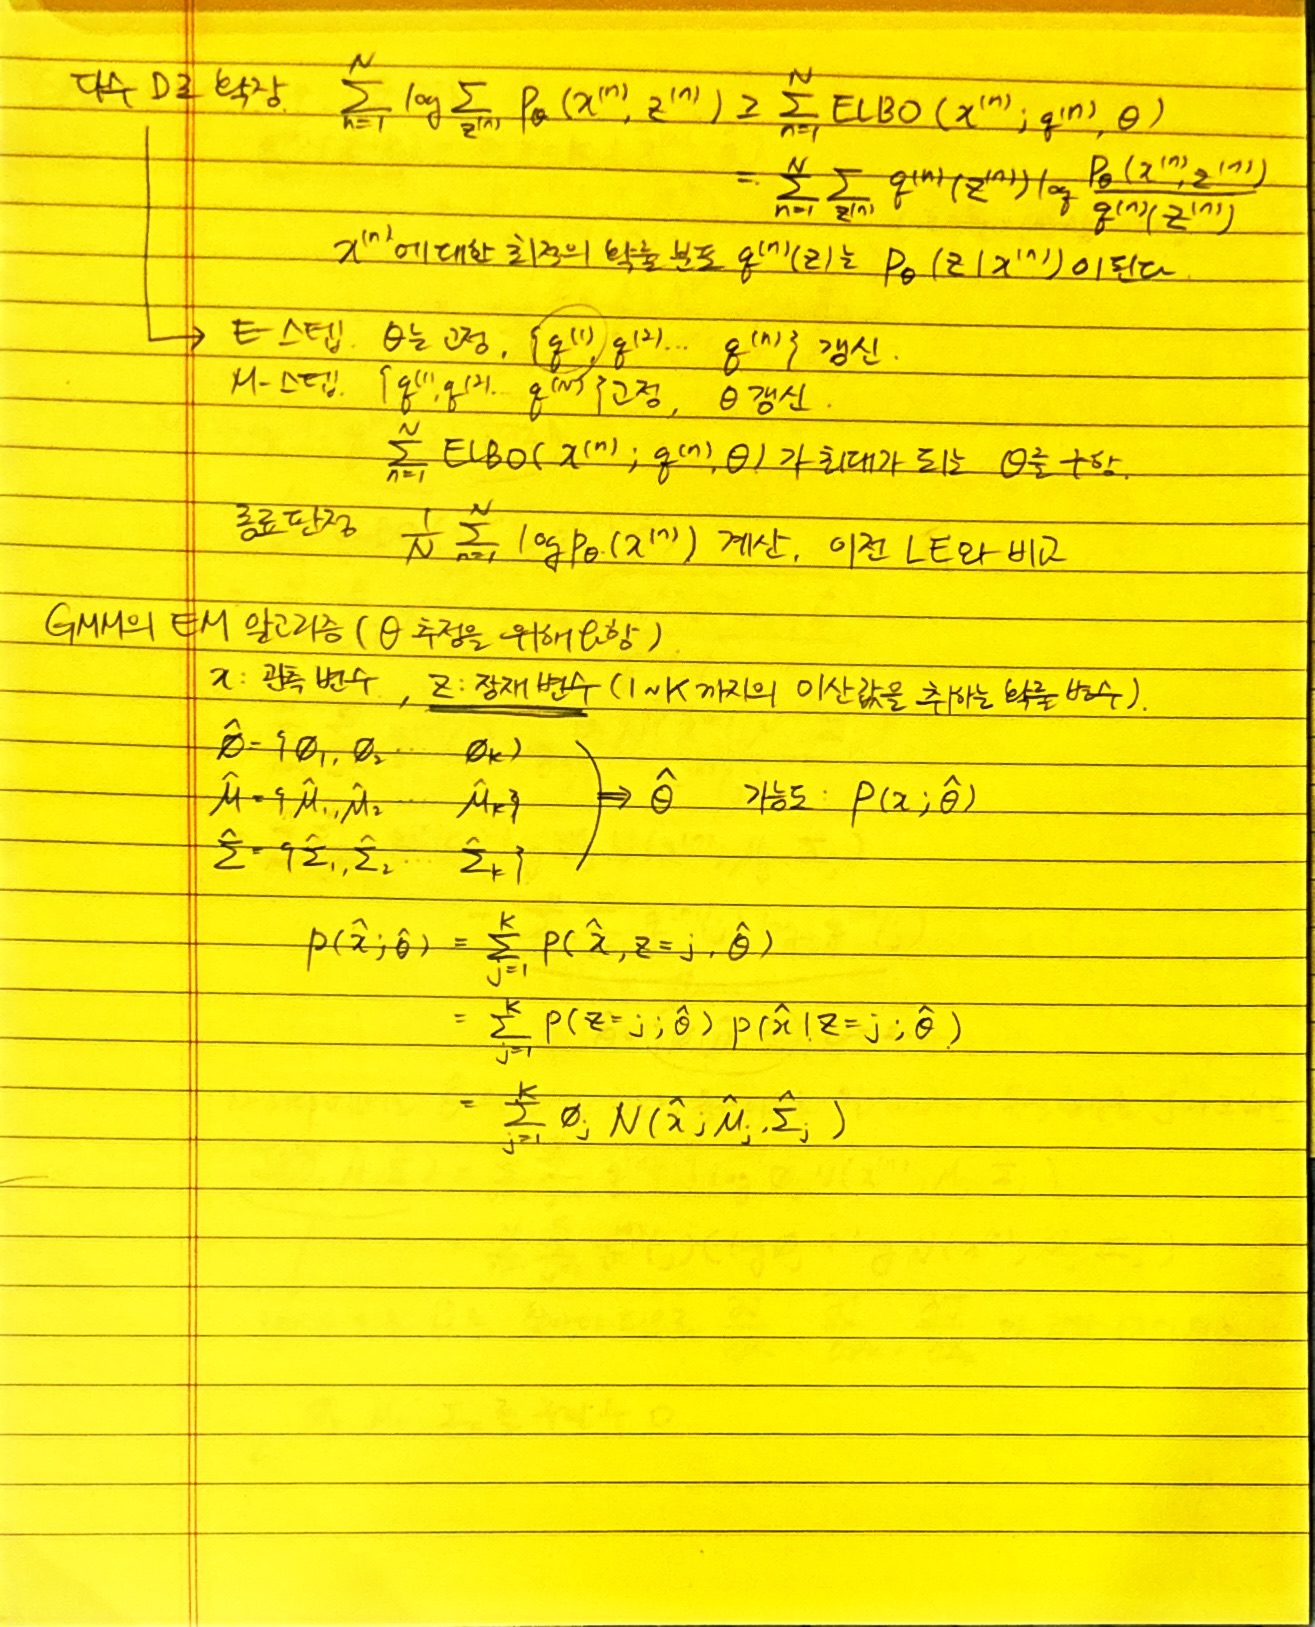 다수 D로 확장. $\sum_{n=1}^{N} \log \sum_{z^{(n)}} P_\theta(x^{(n)}, z^{(n)}) \geq \sum_{n=1}^{N} ELBO(x^{(n)}; q^{(n)}, \theta)$
$= \sum_{n=1}^{N} \sum_{z^{(n)}} q^{(n)}(z^{(n)}) \log \frac{P_\theta(x^{(n)}, z^{(n)})}{q^{(n)}(z^{(n)})}$
$x^{(n)}$에 대한 최적의 확률 분포 $q^{(n)}(z)$는 $P_\theta(z|x^{(n)})$이 된다
E-스텝. θ는 고정, $\{q^{(1)}, q^{(2)} \cdots q^{(n)}\}$ 갱신.
M-스텝. $\{q^{(1)}, q^{(2)} \cdots q^{(N)}\}$고정, θ갱신.
$\sum_{n=1}^{N} ELBO(x^{(n)}; q^{(n)}, \theta)$가 최대가 되는 θ를 구함.
종료판정 $\frac{1}{N} \sum_{n=1}^{N} \log P_\theta(x^{(n)})$ 계산, 이전 LE와 비교
GMM의 EM 알고리즘 (θ 추정을 위해 함)
x: 관측 변수, z: 잠재 변수 (1~K 까지의 이산값을 취하는 확률 변수).
$\hat{\phi} = \{\phi_1, \phi_2 \cdots \phi_K\}$
$\hat{\mu} = \{\hat{\mu}_1, \hat{\mu}_2 \cdots \hat{\mu}_K\}$ ⇒ $\hat{\theta}$ 가능도: $P(x; \hat{\theta})$
$\hat{\Sigma} = \{\hat{\Sigma}_1, \hat{\Sigma}_2 \cdots \hat{\Sigma}_K\}$
$p(\hat{x}; \hat{\theta}) = \sum_{j=1}^{K} P(\hat{x}, z=j, \hat{\theta})$
$= \sum_{j=1}^{K} P(z=j; \hat{\theta}) p(\hat{x} | z=j; \hat{\theta})$
$= \sum_{j=1}^{K} \phi_j N(\hat{x}; \hat{\mu}_j, \hat{\Sigma}_j)$